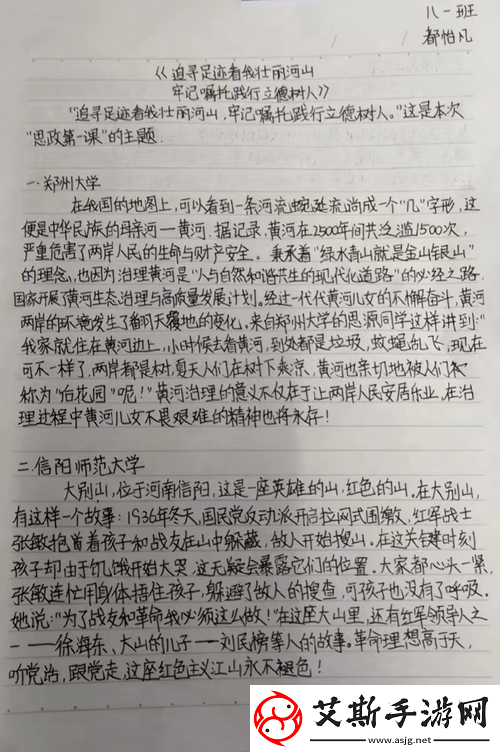 八一班
都怡凡
《追寻足迹看我壮丽河山
牢记嘱托践行立德树人》
"追寻足迹看我壮丽河山,牢记嘱托践行立德树人。"这是本次
"思政第一课"的主题.
一.郑州大学
在我国的地图上,可以看到一条河流蜿蜒流淌成一个"几"字形,这
便是中华民族的母亲河—黄河.据记录,黄河在2500年间共泛滥1500次,
严重危害了两岸人民的生命与财产安全。秉承着"绿水青山就是金山银山"
的理念,也因为治理黄河是"人与自然和谐共生的现代化道路"的必经之路.
国家开展了黄河生态治理与高质量发展计划.经过一代代黄河儿女的不懈奋斗,黄河
两岸的环境发生了翻天覆地的变化。来自郑州大学的思源同学这样讲到:"
我家就住在黄河边上,小时候去看黄河,到处都是垃圾,蚊蝇乱飞,现在
可不一样了,两岸都是树,夏天人们在树下乘凉,黄河也亲切地被人们称
称为"百花园"呢!"黄河治理的意义不仅在于让两岸人民安居乐业,在治
理过程中黄河儿女不畏艰难的精神也将永存!
二.信阳师范大学
大别山,位于河南信阳,这是一座英雄的山.红色的山.在大别山,
有这样一个故事:1936年冬天,国民党反动派开启拉网式围缴,红军战士
张敏抱着孩子和战友在山中躲藏,敌人开始搜山。在这关键时刻
孩子却由于饥饿开始大哭,这无疑会暴露它们的位置.大家都心头一紧,
张敏连忙用身体捂住孩子,躲避了敌人的搜查,可孩子也没有了呼吸.
她说:"为了战友和革命我必须这么做!"在这座大山里,还有红军领导人之
一——徐海东、大山的儿子——刘民榜等人的故事.革命理想高于天,
听党治,跟党走,这座红色主义江山永不褪色!
艾斯手游网
www.asjg.net